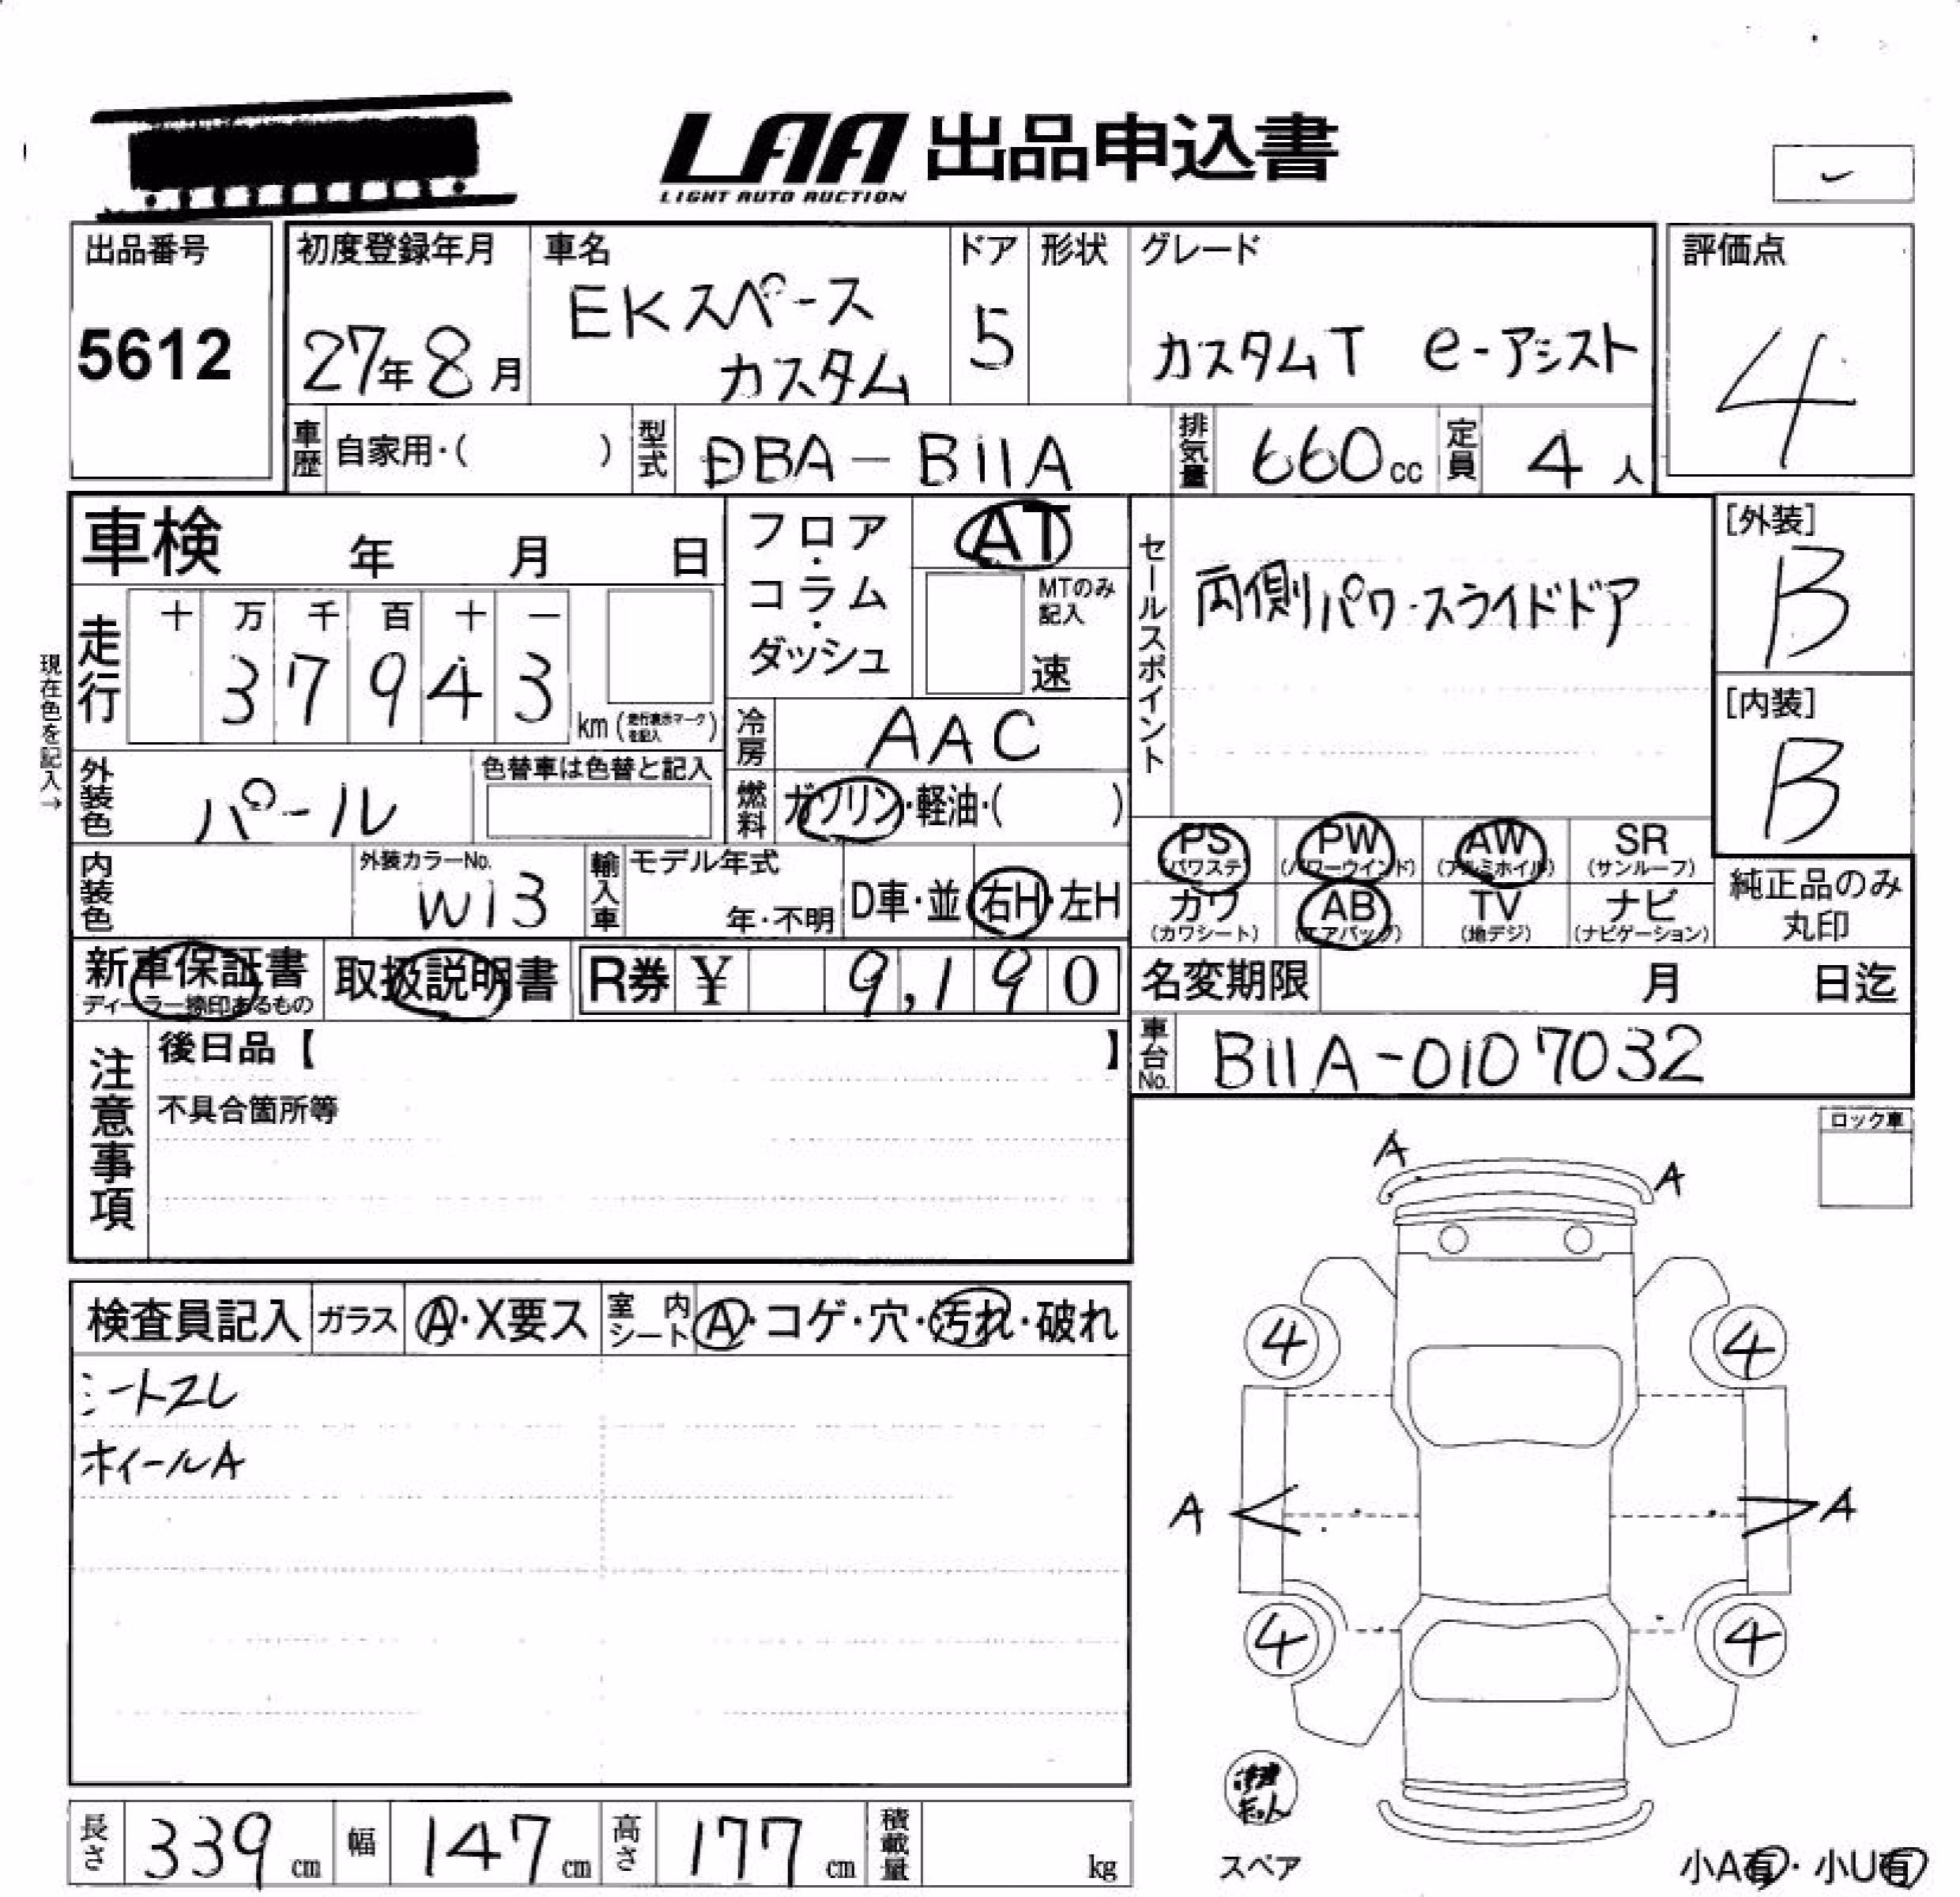 LAA 出品申込書
LIGHT AUTO AUCTION
出品番号
5612
初度登録年月
27年8月
車名
EKスペース
カスタム
ドア
5
形状
グレード
カスタムT e-アシスト
評価点
4
車歴 自家用・( )
型式 DBA-B11A
排気量 660cc
定員 4人
車検 年 月 日
現在色を記入→
走行
十 万 千 百 十 一
3 7 9 4 3
km(走行表示マークを記入)
フロア・コラム・ダッシュ
AT
MTのみ記入
速
冷房 AAC
燃料 ガソリン・軽油・( )
外装色 パール
色替車は色替と記入
内装色
外装カラーNo.
W13
輸入車 モデル年式
年・不明
D車・並 右H・左H
セールスポイント
両側パワースライドドア
[外装]
B
[内装]
B
PS (パワステ)
PW (パワーウインド)
AW (アルミホイル)
SR (サンルーフ)
カワ (カワシート)
AB (エアバッグ)
TV (地デジ)
ナビ (ナビゲーション)
純正品のみ
丸印
新車保証書
ディーラー捺印あるもの
取扱説明書
R券 ¥ 9,190
名変期限 月 日迄
車台No. B11A-0107032
注意事項
後日品【 】
不具合箇所等
ロック車
検査員記入
ガラス A・X要ス
室内シート A・コゲ・穴・汚れ・破れ
シートスレ
ホイールA
A
A
4 4
A A
4 4
スペア
小A有・小U有
長さ 339cm
幅 147cm
高さ 177cm
積載量 kg